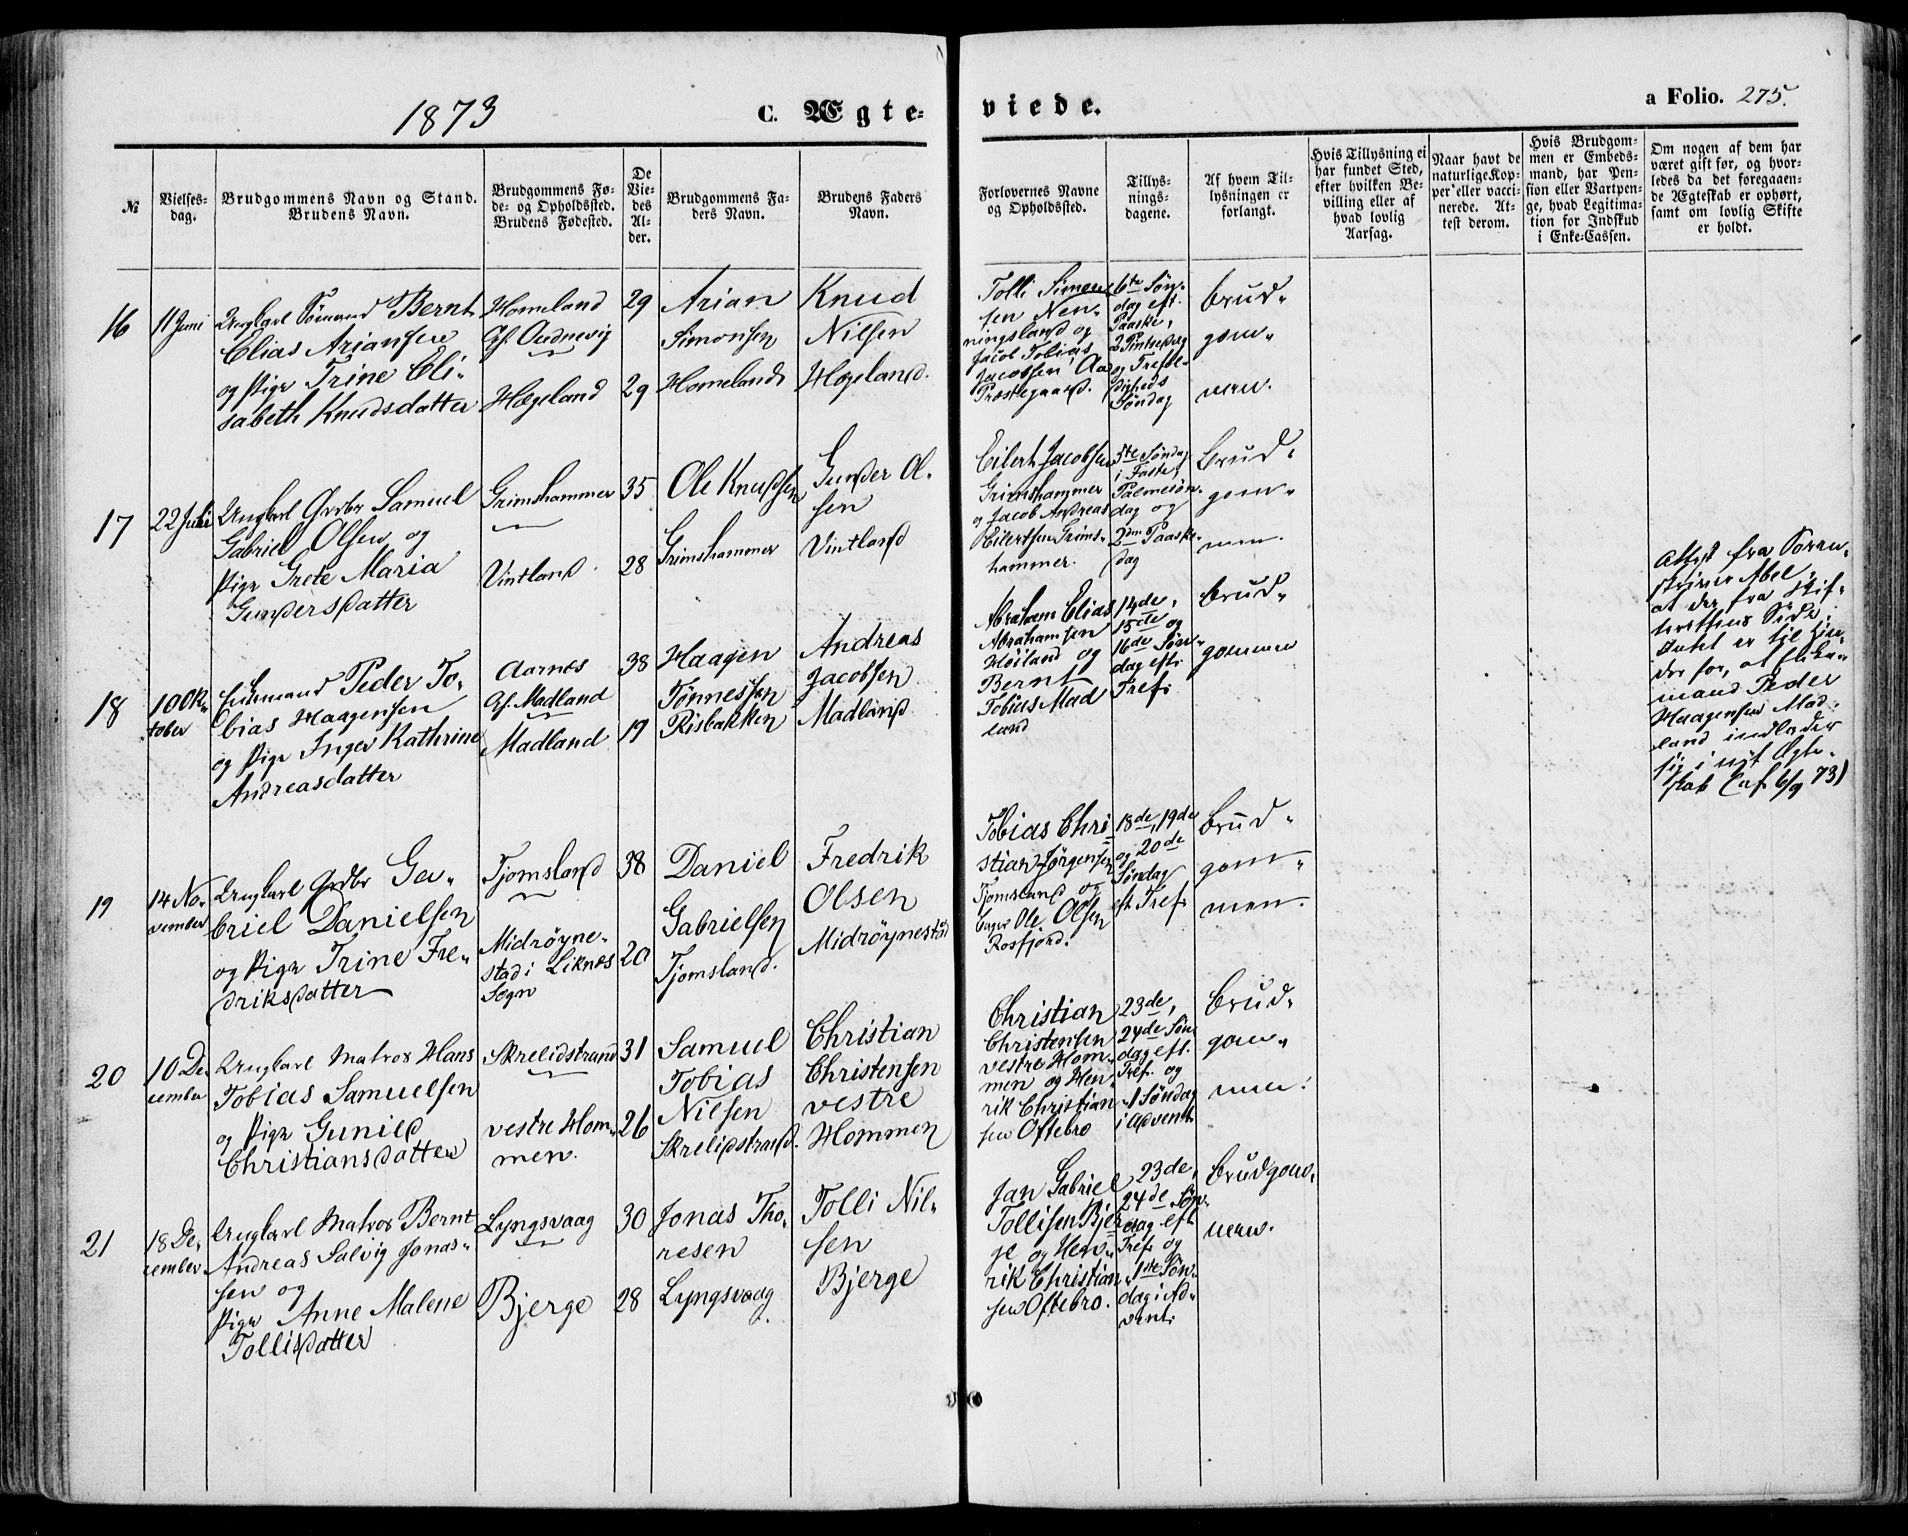 1873
C. Ægte-
viede.
a Folio. 275.
№
Vielses-
dag.
Brudgommens Navn og Stand.
Brudens Navn.
Brudgommens Fø-
de- og Opholdssted.
Brudens Fødested.
De
Vie-
des
Al-
der.
Brudgommens Fa-
ders Navn.
Brudens Faders
Navn.
Forlovernes Navne
og Opholdssted.
Tillys-
nings-
dagene.
Af hvem Til-
lysningen er
forlangt.
Hvis Tillysning ei
har fundet Sted,
efter hvilken Be-
villing eller af
hvad lovlig
Aarsag.
Naar havt de
naturlige Kop-
per eller vacci-
nerede. At-
test derom.
Hvis Brudgom-
men er Embeds-
mand, har Pen-
sion eller Vartpen-
ge, hvad Legitima-
tion for Indskud
i Enke-Cassen.
Om nogen af dem har
været gift før, og hvor-
ledes da det foregaaen-
de Ægteskab er ophørt,
samt om lovlig Skifte
er holdt.
16
11 Juni
Ungkarl Sømand Bernt
Elias Ariansen
og Pige Trine Eli-
sabeth Knudsdatter
Homeland
Gf. Audnevig
Hægeland
29
29
Arian
Simonsen
Homeland
Knud
Nilsen
Hægeland.
Tolli Simon
sen Nen-
ningsland og
Jacob Tobias
Jacobsen Aa
Præstegaard.
6te Søn-
dag eft.
Paaske,
2 Pintsedag
og Trefol-
digheds
Søndag
brud-
gom-
men.
17
22 Juli
Ungkarl Grdbr Samuel
Gabriel Olsen og
Pige Grete Maria
Gundersdatter
Grimshammer
Vintland.
35
28
Ole Knudsen
Grimshammer
Gunder Ol-
sen
Vintland
Eilert Jacobsen
Grimshammer
og Jacob Andreas
Eilertsen Grims-
hammer.
5te Søndag
i Faste,
Palmesøn-
dag og
2den Paaske-
dag
brud-
gom-
men.
18
10 Ok-
tober
Enkemand Peder To-
bias Haagensen
og Pige Inger Kathrine
Andreasdatter
Aarnes
Gf. Madland
Madland
38
19
Haagen
Tønnessen
Risbakken
Andreas
Jacobsen
Madland.
Abraham Elias
Abrahamsen
Høiland og
Bernt
Tobias Mad
land
14de,
15de og
16de Søn-
dag eft.
Tref.
brud-
gommen
Attest fra Soren-
skriver Abel,
at der fra Skif-
terettens Side
Intet er til Hin-
der for, at Enke-
mand Peder
Haagensen Mad-
land indlader
sig i nyt Ægte-
skab (af 6/9 73)
19
14 No-
vember
Ungkarl Grdbr Ga-
briel Danielsen
og Pige Trine Fre-
driksdatter
Tjomsland
Midrøyne-
stad i Liknes
Sogn
38
20
Daniel
Gabrielsen
Tjomsland.
Fredrik
Olsen
Midrøynestad
Tobias Chri
stian Jørgensen
Tjomsland og
Ole Olsen
Rosfjord.
18de, 19de
og 20de
Søndag
eft Tref.
brud-
gom-
men.
20
10 De-
cember
Ungkarl Matros Hans
Tobias Samuelsen
og Pige Gunild
Christiansdatter
Skrelidstrand
vestre Hom-
men.
31
26
Samuel
Tobias
Nilsen
Skrelidstrand.
Christian
Christensen
vestre
Hommen
Christian
Christensen
vestre Hom-
men og Hen-
rik Christian
sen Oftebro
23de,
24de Søn-
dag eft.
Tref. og
1 Søndag
i Advent.
brud-
gom-
men.
21
18 De-
cember
Ungkarl Matros Bernt
Andreas Salvig Jonas-
sen og
Pige Anne Malene
Tollisdatter
Lyngsvaag
Bjerge
30
28
Jonas Tho-
resen
Lyngsvaag.
Tolli Nil-
sen
Bjerge
Jan Gabriel
Tollisen Bjer
ge og Hen-
rik Christian
sen Oftebro.
23de,
24de Søn-
dag eft
Tref. og
1ste Søn-
dag i Ad-
vent.
brudgom-
men.